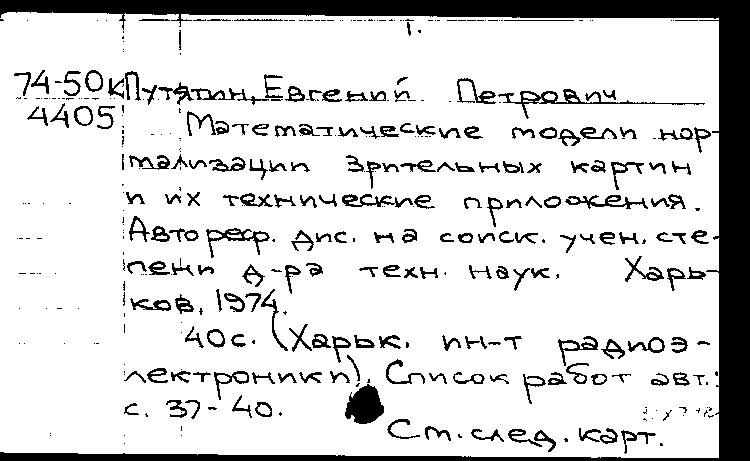 1.
74-50к Путятин, Евгений Петрович
4405 Математические модели нор-
мализации зрительных картин
и их технические приложения.
Автореф. дис. на соиск. учен. сте-
пени д-ра техн. наук. Харь-
ков, 1974.
40с. (Харьк. ин-т радиоэ-
лектроники). Список работ авт.:
с. 37-40.
См. след. карт.